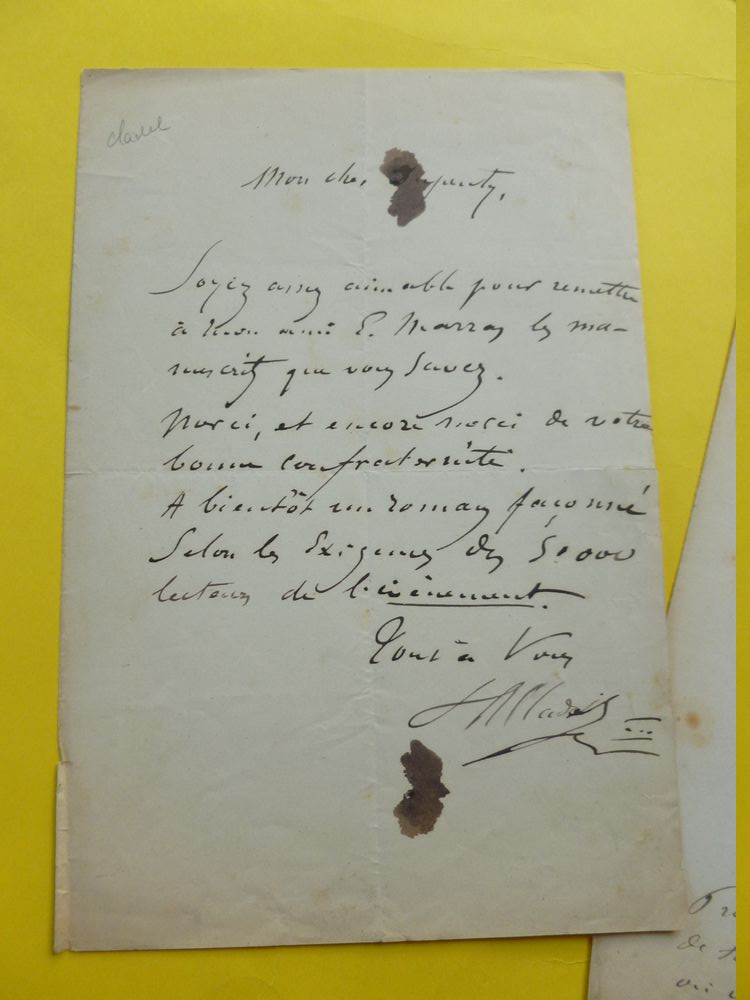 cladel
Mon cher Duputy,
Soyez assez aimable pour remettre
à mon ami E. Marras les ma-
nuscrits que vous savez.
Merci, et encore merci de votre
bonne confraternité.
A bientôt un roman façonné
Selon les Exigences des 50000
lecteurs de l'événement.
Tout à Vous
Cladel
de